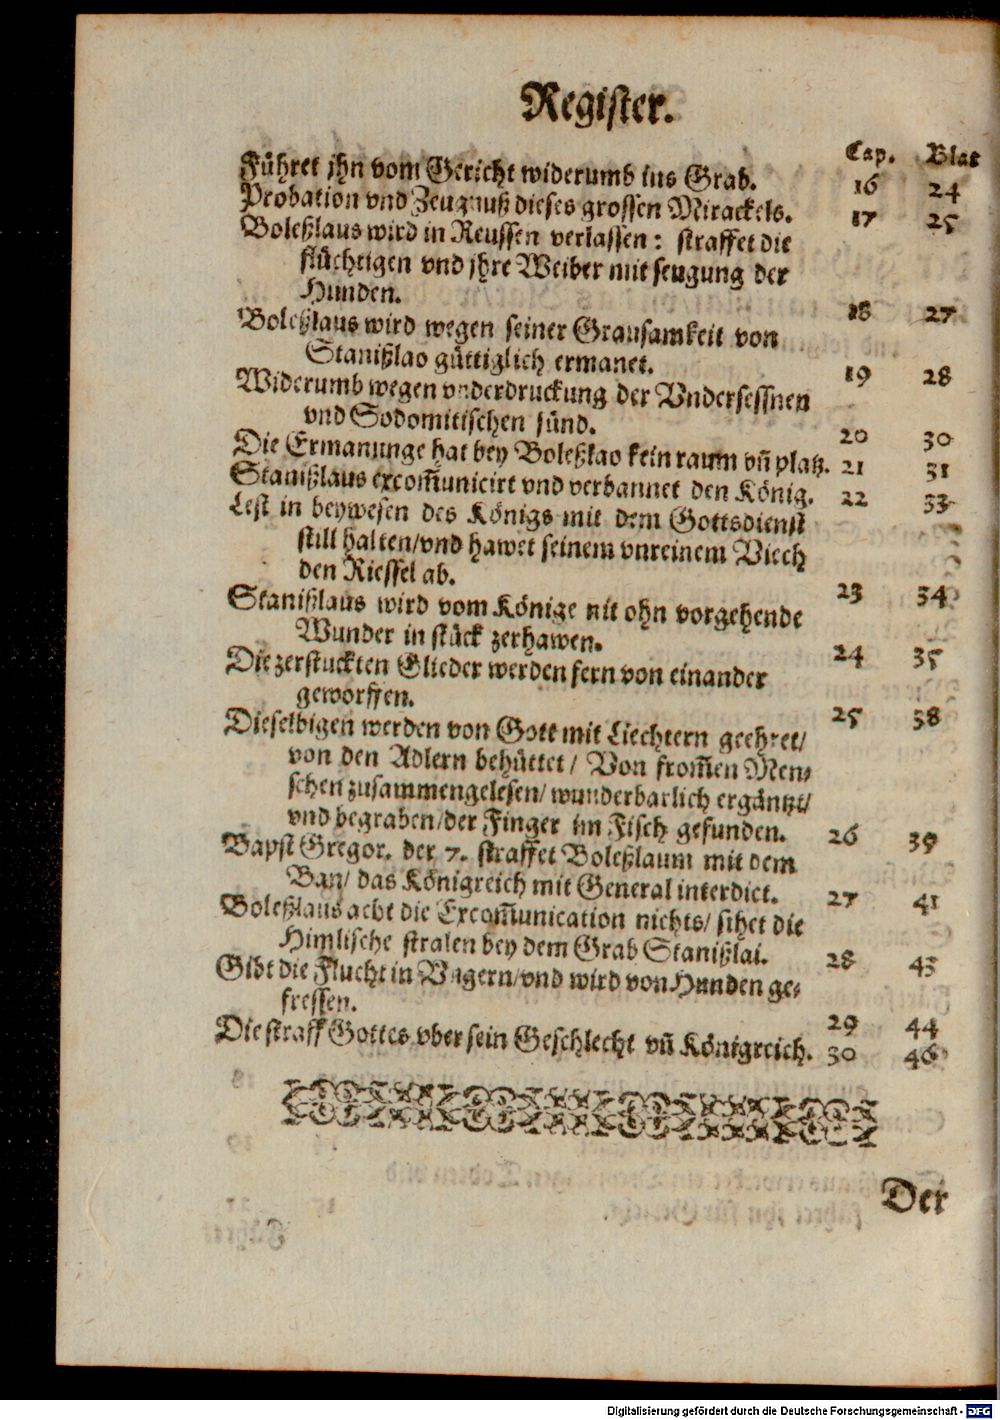 Register.
Cap. Blat
Führet jhn vom Gericht widerumb ins Grab. 16 24
Probation vnd Zeugnuß dieses grossen Mirackels. 17 25
Boleßlaus wird in Reussen verlassen: straffet die
flüchtigen vnd jhre Weiber mit seugung der
Hunden. 18 27
Boleßlaus wird wegen seiner Grausamkeit von
Stanißlao güttiglich ermanet. 19 28
Widerumb wegen vnderdruckung der Vndersessnen
vnd Sodomitischen sünd. 20 30
Die Ermanunge hat bey Boleßlao kein raum vñ platz. 21 31
Stanißlaus excom̃unicirt vnd verbannet den König. 22 33
Lest in beywesen des Königs mit dem Gottsdienst
still halten/vnd hawet seinem vnreinem Viech
den Riessel ab. 23 34
Stanißlaus wird vom Könige nit ohn vorgehende
Wunder in stück zerhawen. 24 35
Die zerstuckten Glieder werden fern von einander
geworffen. 25 38
Dieselbigen werden von Gott mit Liechtern geehret/
von den Adlern behüttet / Von from̃en Men⸗
schen zusammengelesen/ wunderbarlich ergäntzt/
vnd begraben/der Finger im Fisch gefunden. 26 39
Bapst Gregor. der 7. straffet Boleßlaum mit dem
Ban/ das Königreich mit General interdict. 27 41
Boleßlaus acht die Excom̃unication nichts/ sihet die
Himlische stralen bey dem Grab Stanißlai. 28 43
Gibt die Flucht in Vngern/vnd wird von Hunden ge⸗
fressen. 29 44
Die straff Gottes vber sein Geschlecht vñ Königreich. 30 46
Der
Digitalisierung gefördert durch die Deutsche Forschungsgemeinschaft - DFG